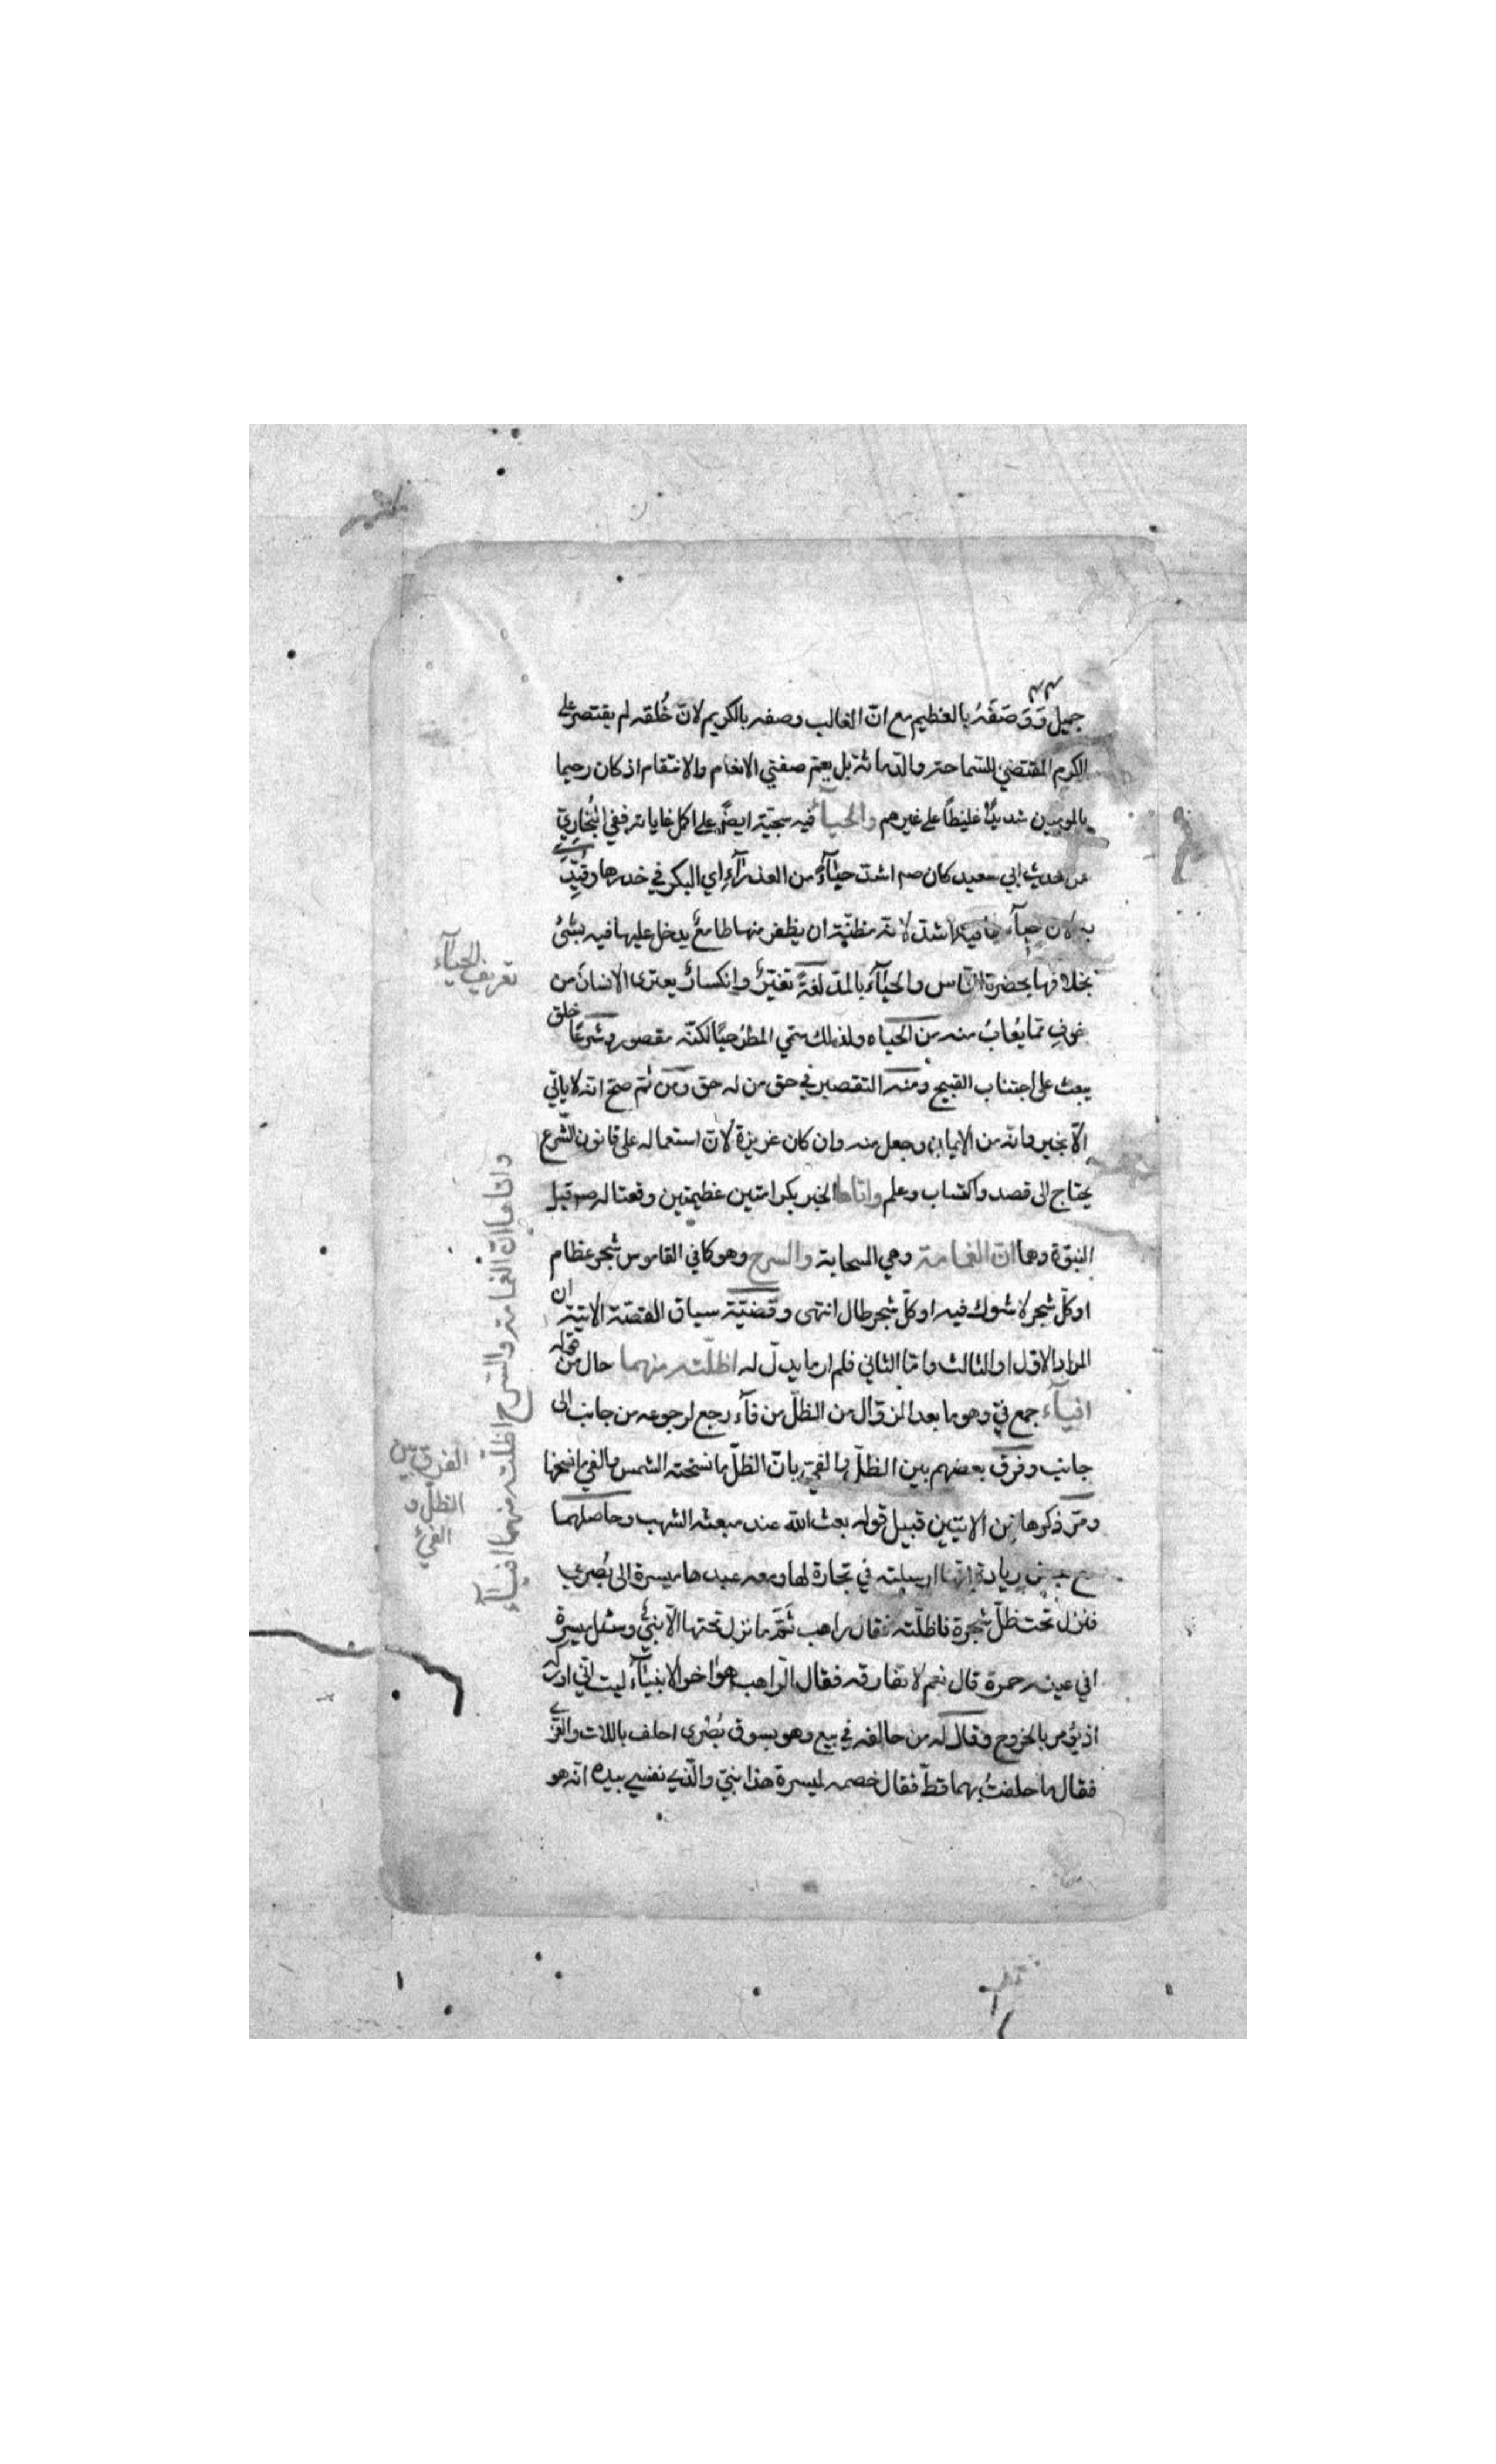 جميل وَوَصَفَهُ بالعظيم مع انّ الغالب وصفه بالكريم لانّ خُلقه لم يقتصر على
الكرم المقتضي للسّماحة والدّماثة بل يعم صفتي الانعام والانتقام اذ كان رحيما
بالمومنين شديدًا غليظًا على غيرهم والحياءُ فيه سجيّة ايضًا على اكمل غاياته ففي البُخاريّ
من حديث ابي سعيد كان صم اشدّ حيَآءً من العذرآءِ اي البكر في خدرها وقُيِّدَ
به لان حيآء ها فيه اشدّ لانّه مظنّة ان يظفر منها طامعٌ يدخل عليها فيه بشئ
بخلافها بحضرة النّاس والحَيآء بالمدّ لغةً تغيّرٌ وانكسارٌ يعترى الانسانَ من
خوفِ ممّا يُعابُ منه من الحياه ولذلك سمّي المطرُ حيًا لكنّه مقصور وشرعًا خلق
يبعث على اجتناب القبيح ومنه التقصير في حق من له حق ومن ثم صحّ انّه لا ياتي
الّا بخير وانّه من الايمان وجعل منه وان كان غريزة لانّ استعماله على قانون الشّرع
يحتاج الى قصد واكتساب وعلم واتاها الخبر بكرامتين عظيمتين وقعتا له صم قبل
النبوّة وهما انّ الغمامة وهي السحابة والسرح وهو كما في القاموس شجر عظام
او كلّ شجر لا شوك فيه او كلّ شجر طال انتهى وقضيّة سياق القصّة الاتية ان
المراد الاوّل او الثالث وامّا الثاني فلم ار ما يدلّ له اظلّته منهما حال من قوله
افيآء جمع فيّ وهو ما بعد الزوّال من الظلّ من فآء رجع لرجوعه من جانب الى
جانب وفرق بعضهم بين الظلّ والفيّ بانّ الظلّ ما نسخته الشمس والفي ما نسخها
ومرّ ذكرها تين الايتين قبيل قوله بعث الله عند مبعثه الشهب وحاصلهما
مع بعض زيادة انّها ارسلته في تجارة لها ومعه عبدها ميسرة الى بُصرى
فنزل تحت ظلّ شجرة فاظلّته فقال راهب ثَمَّ ما نزل تحتها الّا نبيٌّ وسئل ميسرة
افي عينه حمرة قال نعم لا تفارقه فقال الرّاهب هو اخر الانبيآء ليت انّي ادركه
اذ يُؤمر بالخروج وقال له من حالفه في بيع وهو بسوق بُصْرى احلف باللات والعزّى
فقال ما حلفتُ بهما قطّ فقال خصمه لميسرة هذا نبيّ والّذي نفسي بيده انّه هو
تعريف الحيآء
واتاها انّ الغمامة والسّرح اظلّته منهما افيآء
الفرق بين
الظلّ و
الفيْء